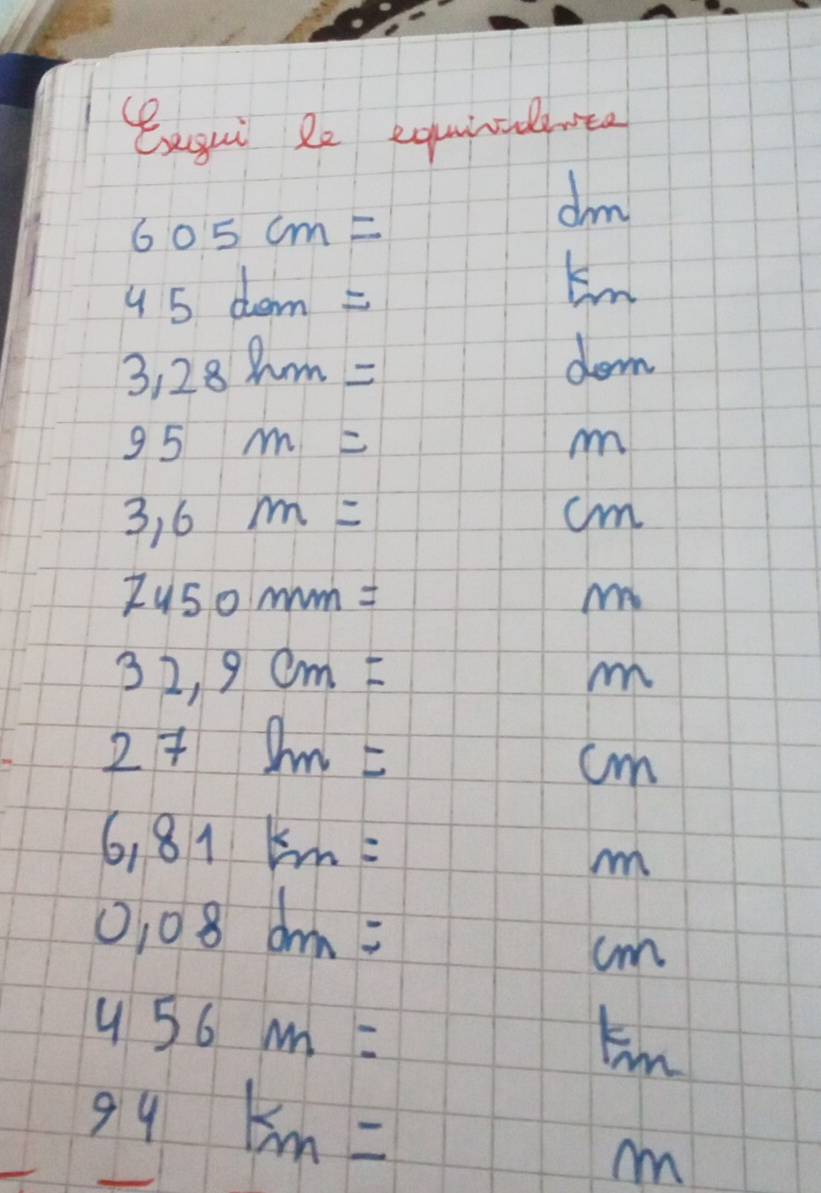 Esegui le equivalenze
605 cm = dm
45 dam = km
3,28 hm = dam
95 m = m
3,6 m = cm
7450 mm = m
32,9 cm = m
27 hm = cm
6,81 km = m
0,08 dm = cm
456 m = km
94 km = m